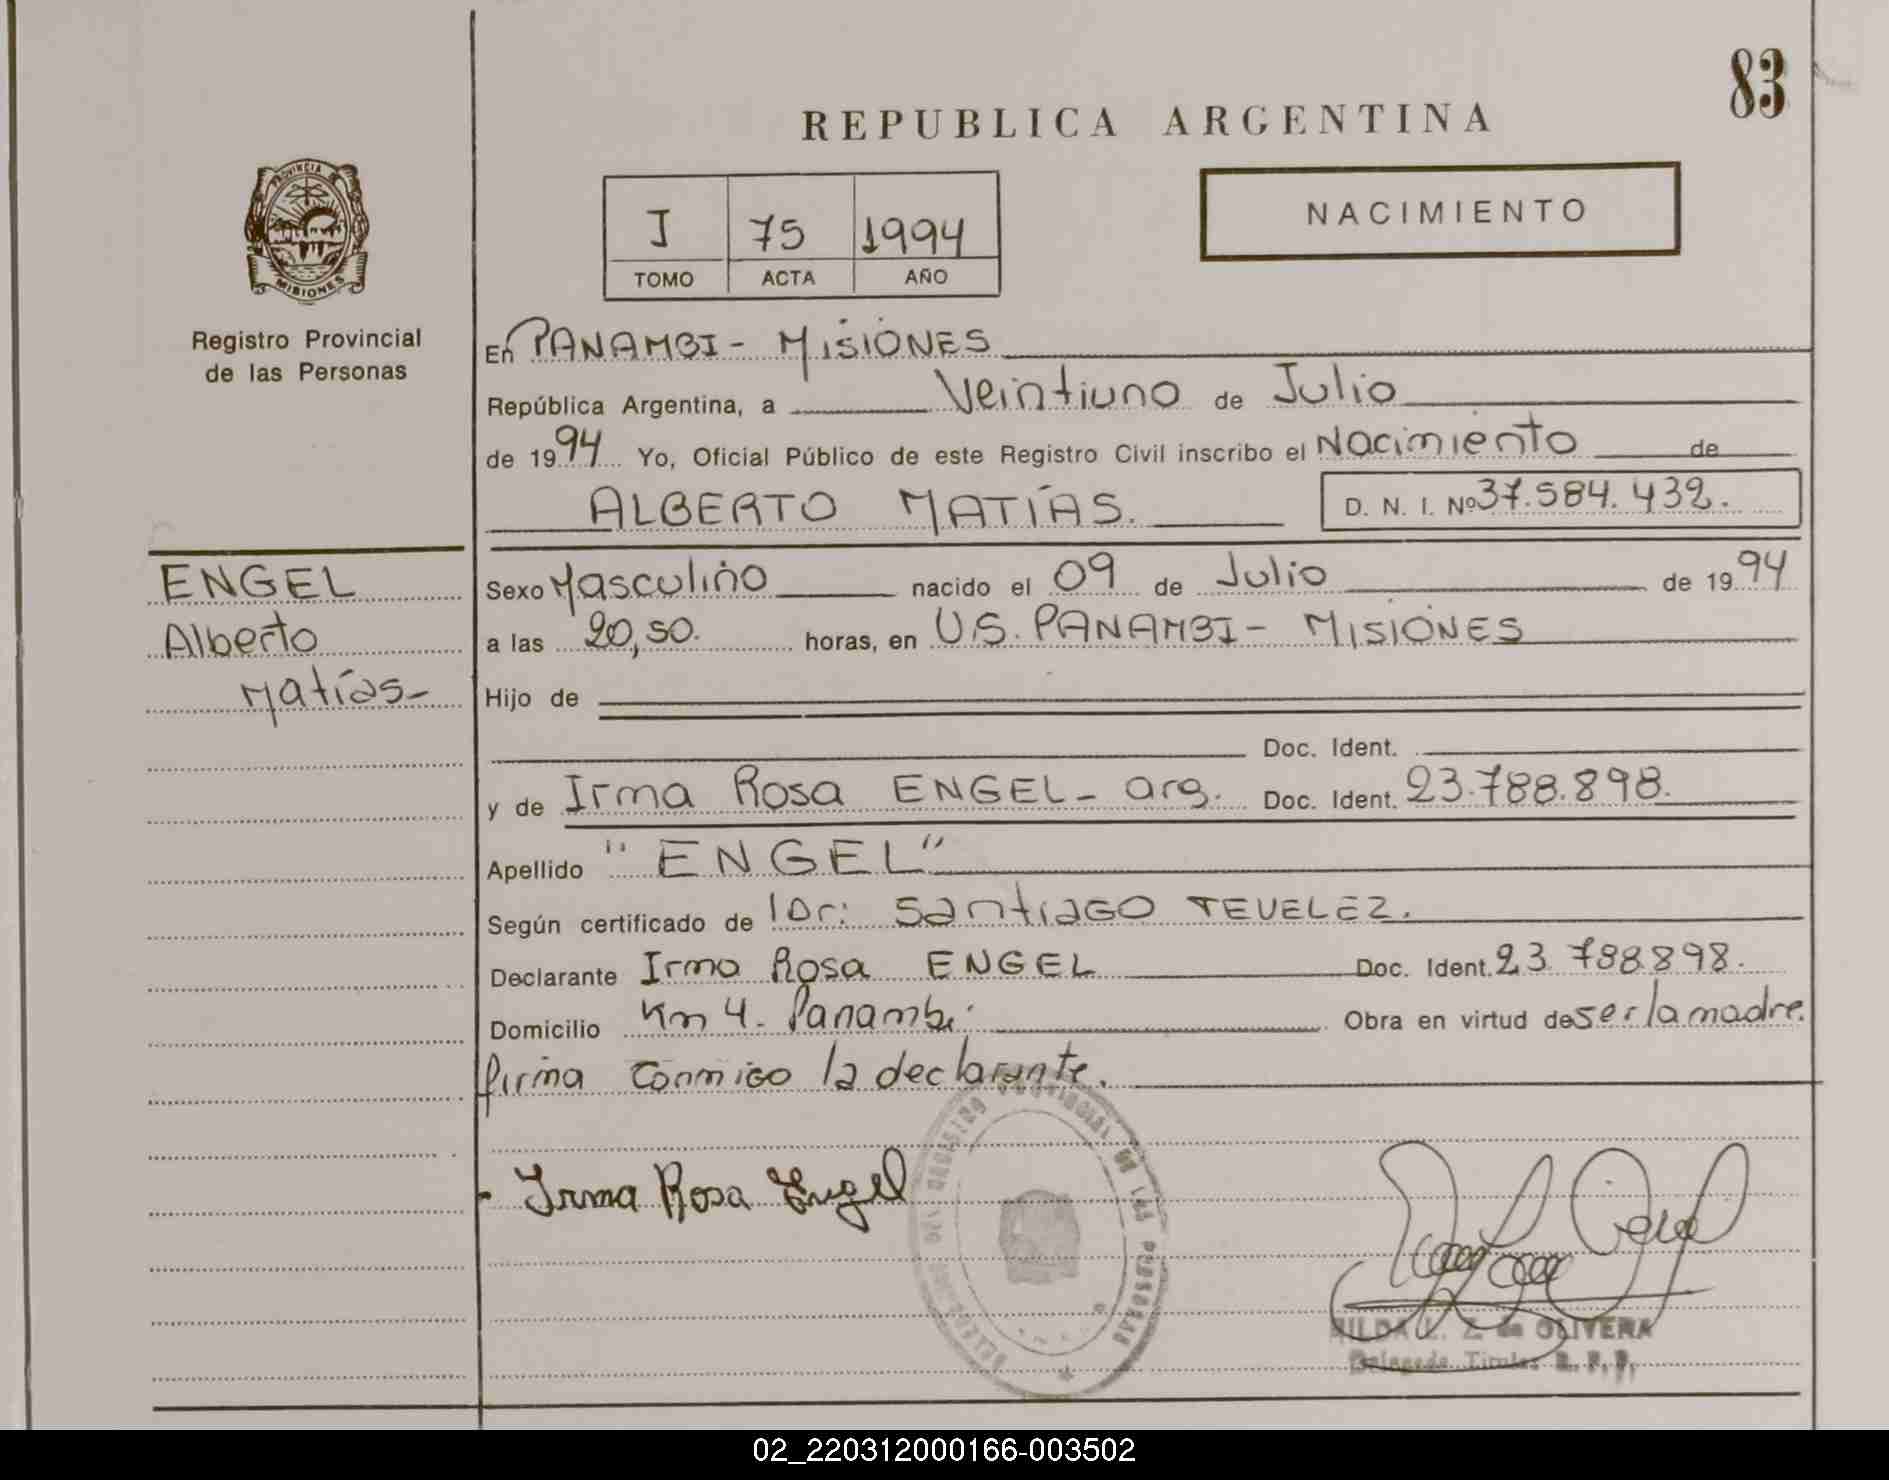 83
REPUBLICA ARGENTINA
PROVINCIA DE
MISIONES
Registro Provincial
de las Personas
I 75 1994
TOMO ACTA AÑO
NACIMIENTO
En PANAMBI - MISIONES
República Argentina, a Veintiuno de Julio
de 1994 Yo, Oficial Público de este Registro Civil inscribo el Nacimiento de
ALBERTO MATÍAS. D. N. I. Nº 37.584.432.
ENGEL
Alberto
Matías-
Sexo Masculino nacido el 09 de Julio de 1994
a las 20,50. horas, en U.S. PANAMBI - MISIONES
Hijo de
Doc. Ident.
y de Irma Rosa ENGEL - arg. Doc. Ident. 23.788.898.
Apellido "ENGEL"
Según certificado de Dr: Santiago TEVELEZ.
Declarante Irma Rosa ENGEL Doc. Ident. 23.788898.
Domicilio Km 4. Panambi Obra en virtud de ser la madre.
firma conmigo la declarante.
Irma Rosa Engel
REGISTRO PROVINCIAL DE LAS PERSONAS
HILDA L. Z. de OLIVERA
Delegada Titular R. P. P.
02_220312000166-003502